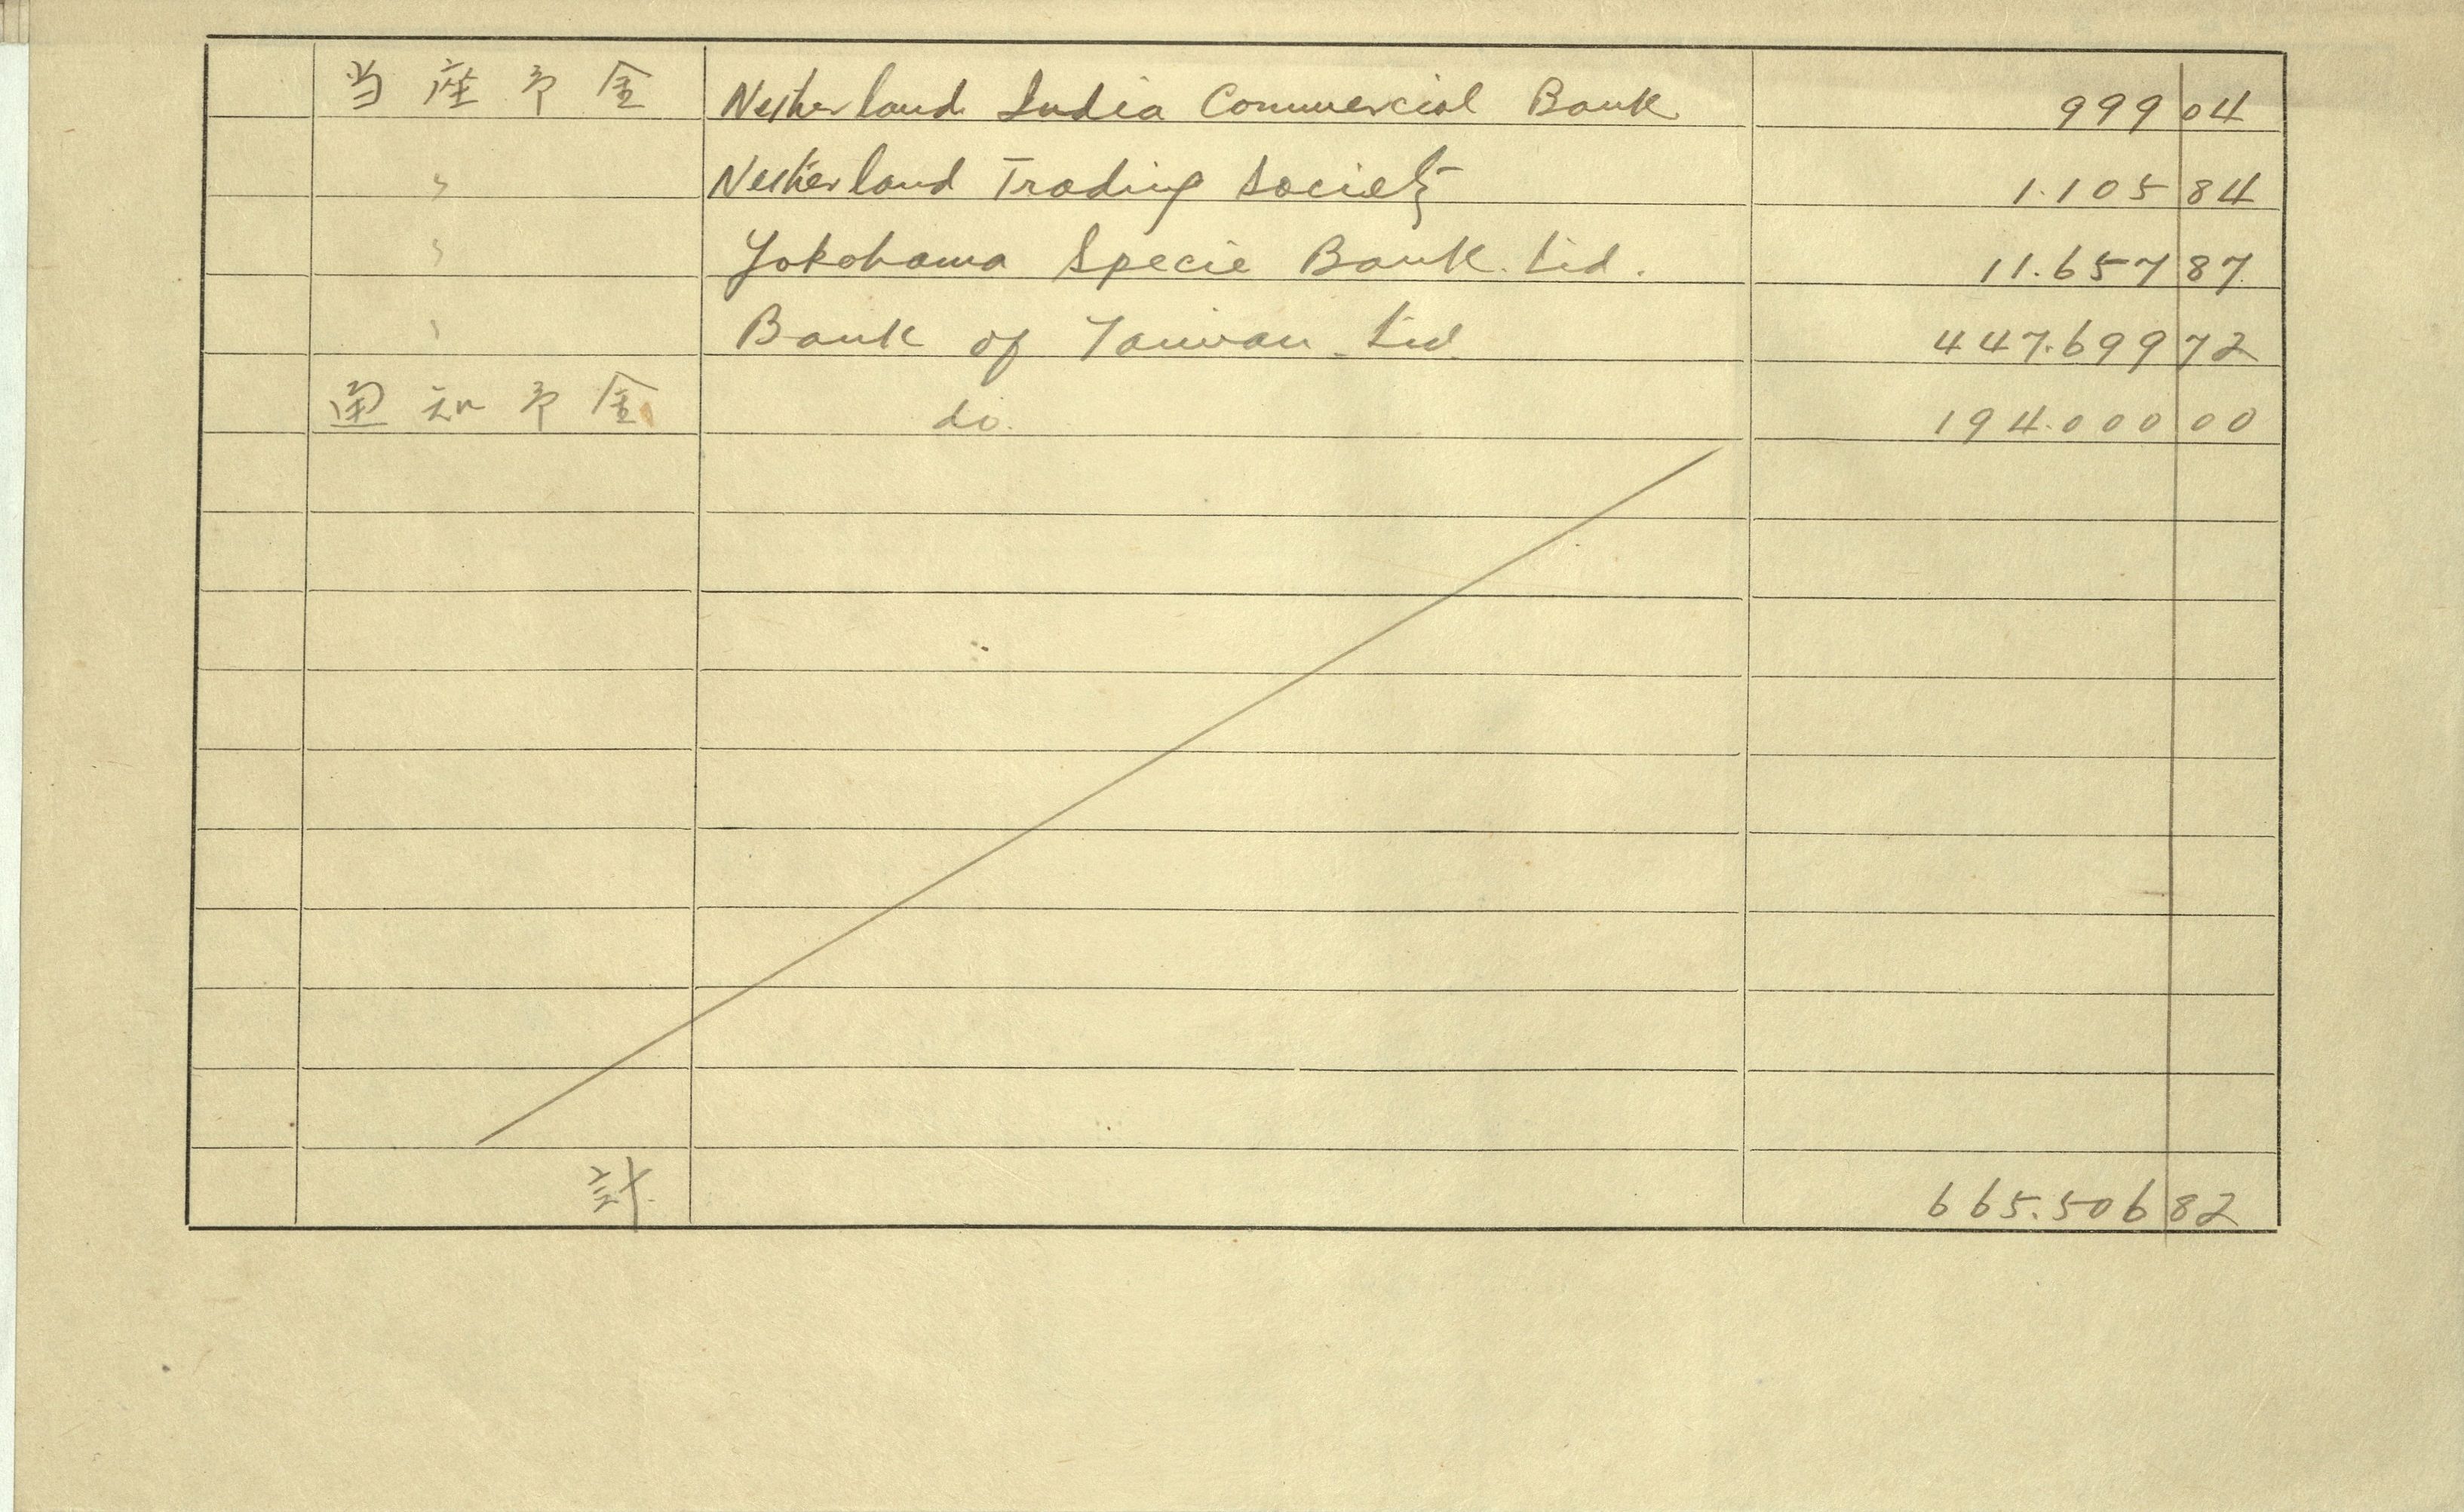 当座予金 Netherland India Commercial Bank 999 04
〃 Netherland Trading Society 1.105 84
〃 Yokohama Specie Bank. Ltd. 11.657 87
〃 Bank of Taiwan. Ltd. 447.699 72
通知予金 do. 194.000 00
計 665.506 82